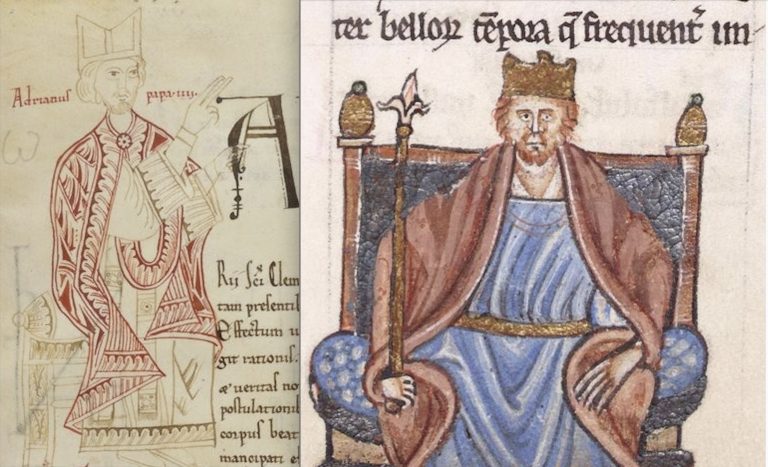 Adrianus papa·iiii·
A
Rii scī Clem
tam presentib
Effectum u
git rationis.
æ ueritas no
postulationib
corpus beat
mancipati e
ter belloꝝ tēpora q̄ frequent᷑ im-